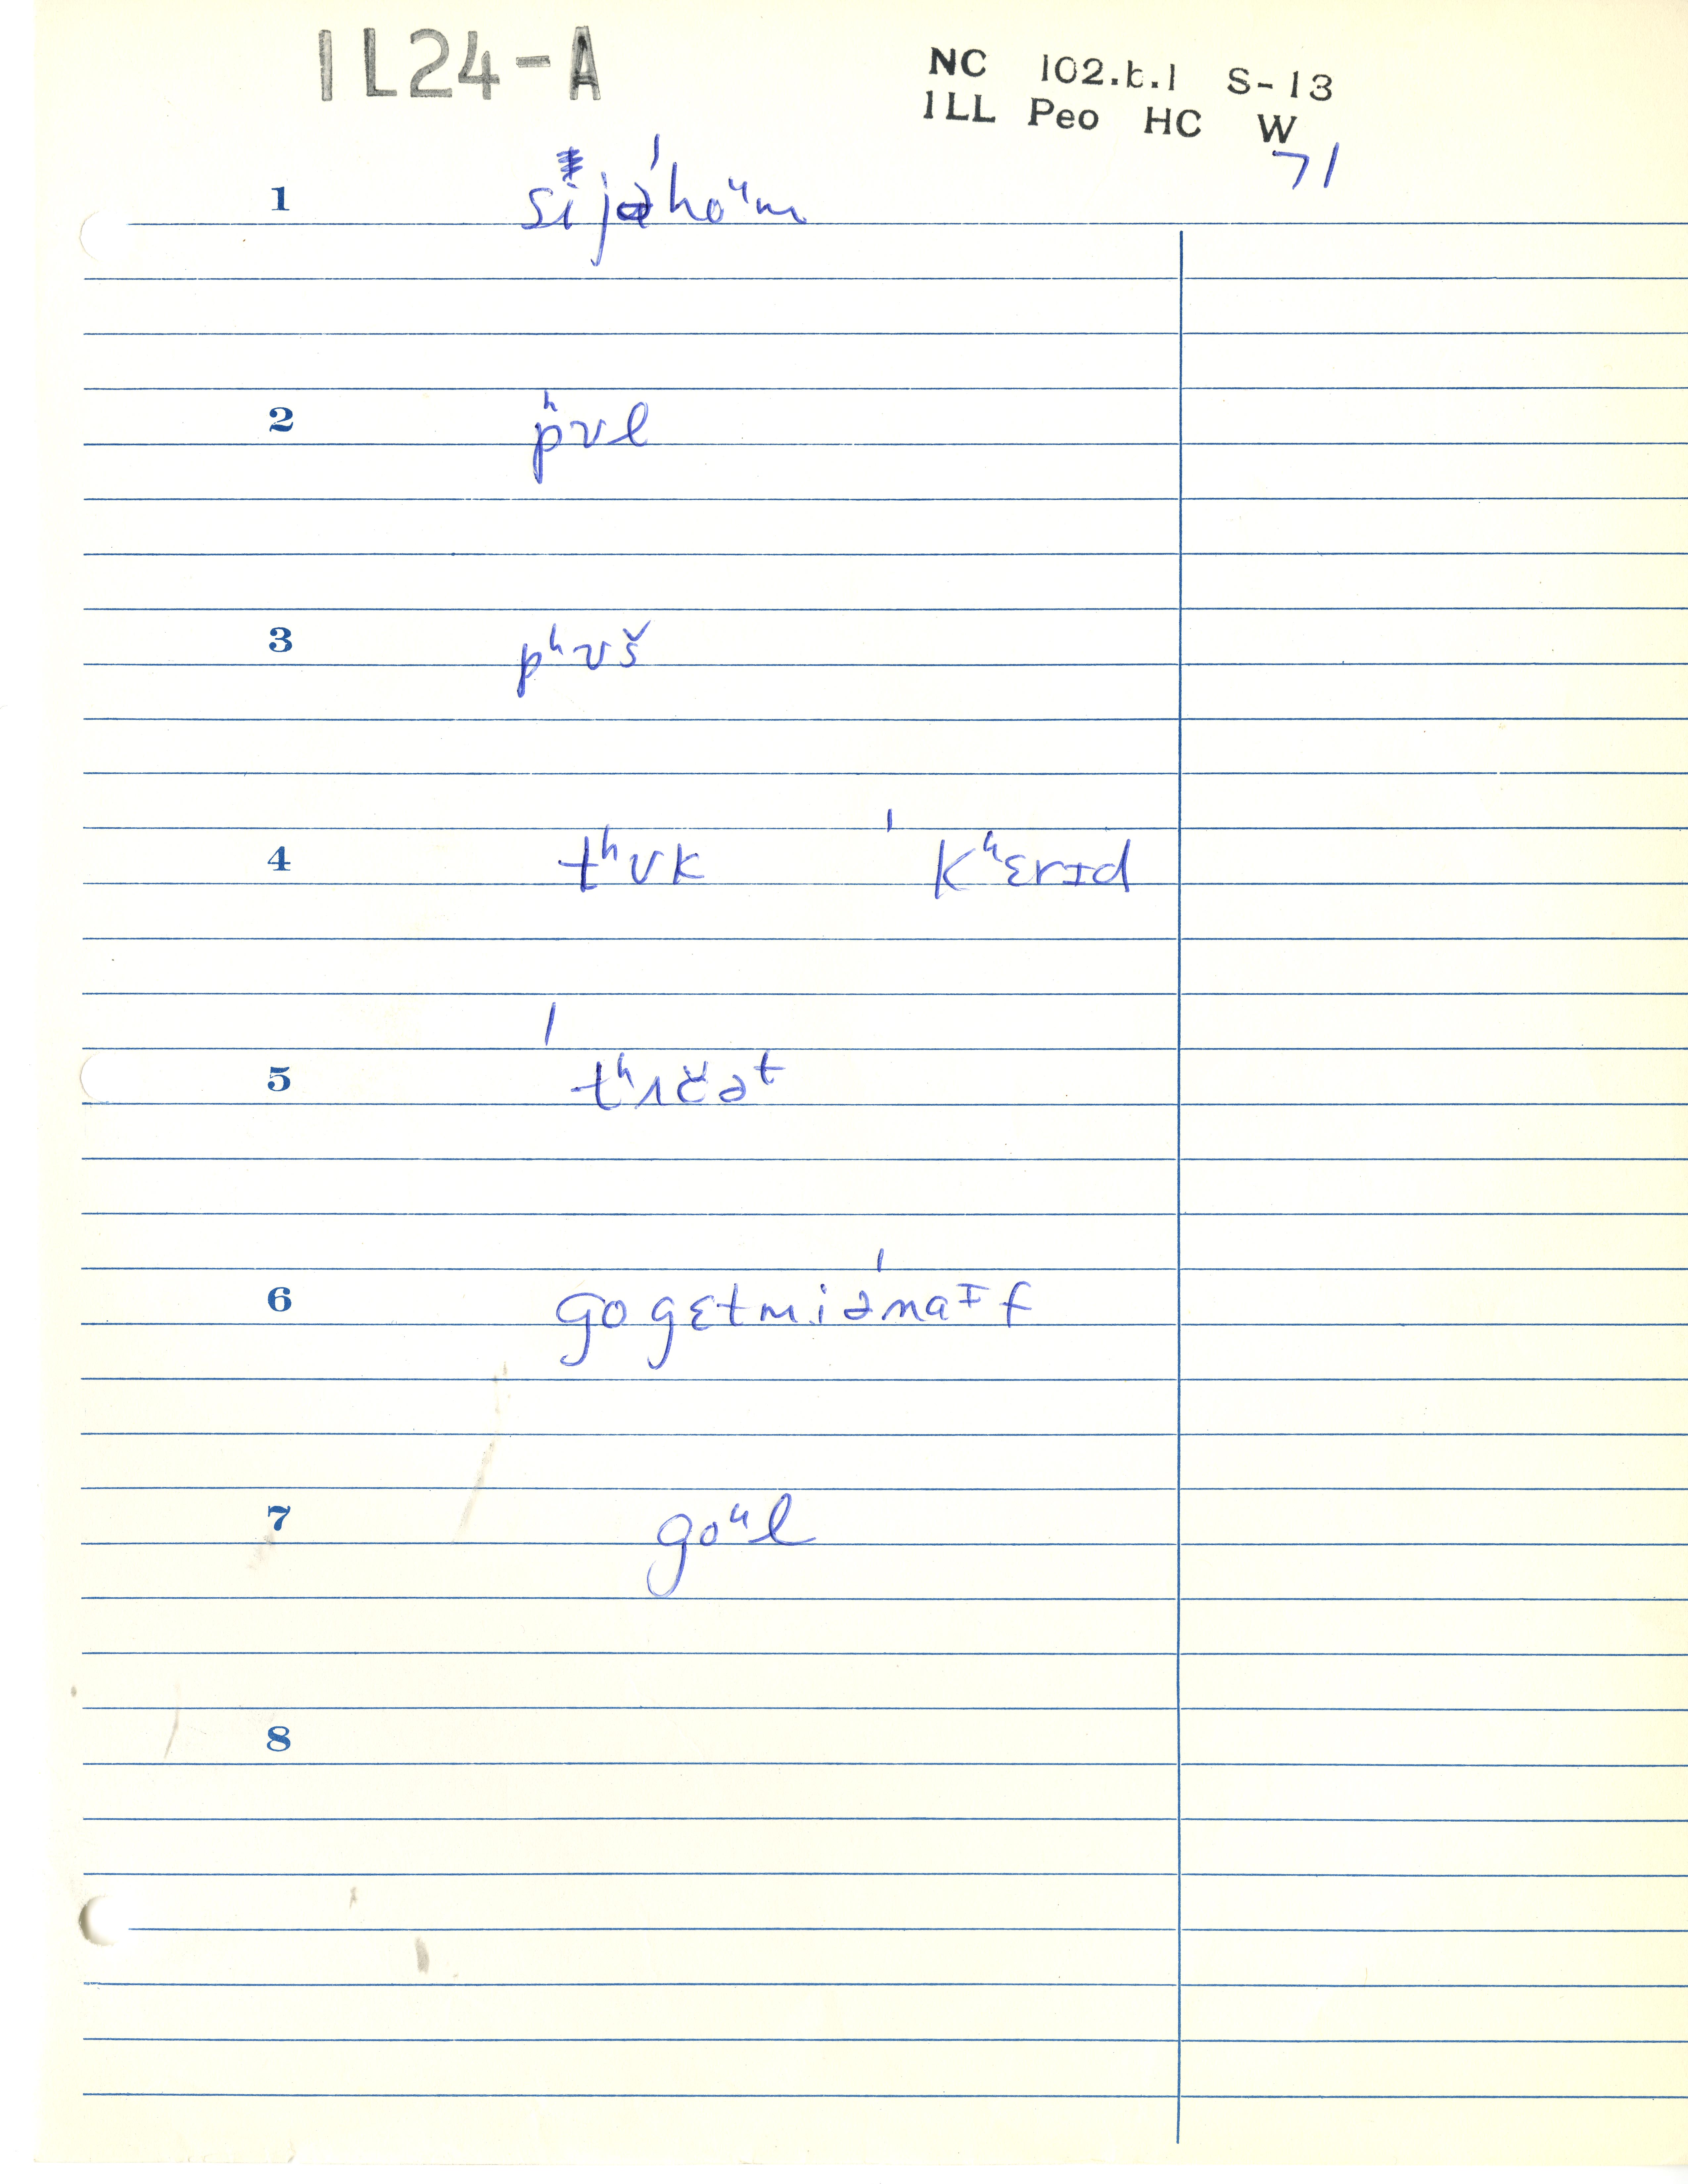 1L24-A
NC 102.b.1 S-13
ILL Peo HC W
71
1 sijəˈhoᵘm
2 pʰʊl
3 pʰʊš
4 tʰʊk ˈkʰɛrɪd
5 ˈtʰıčəᵗ
6 go gɛtmiəˈnaᶦf
7 goᵘl
8